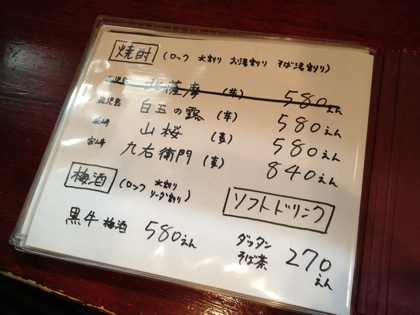 焼酎 (ロック 水割り お湯割り そば湯割り)
鹿児島 北薩摩 (芋) 580えん
鹿児島 白玉の露 (芋) 580えん
山桜 (麦) 580えん
九右衛門 (麦) 840えん
梅酒 (ロック 水割り ソーダ割り)
黒牛梅酒 580えん
ソフトドリンク
ダッタンそば茶 270えん